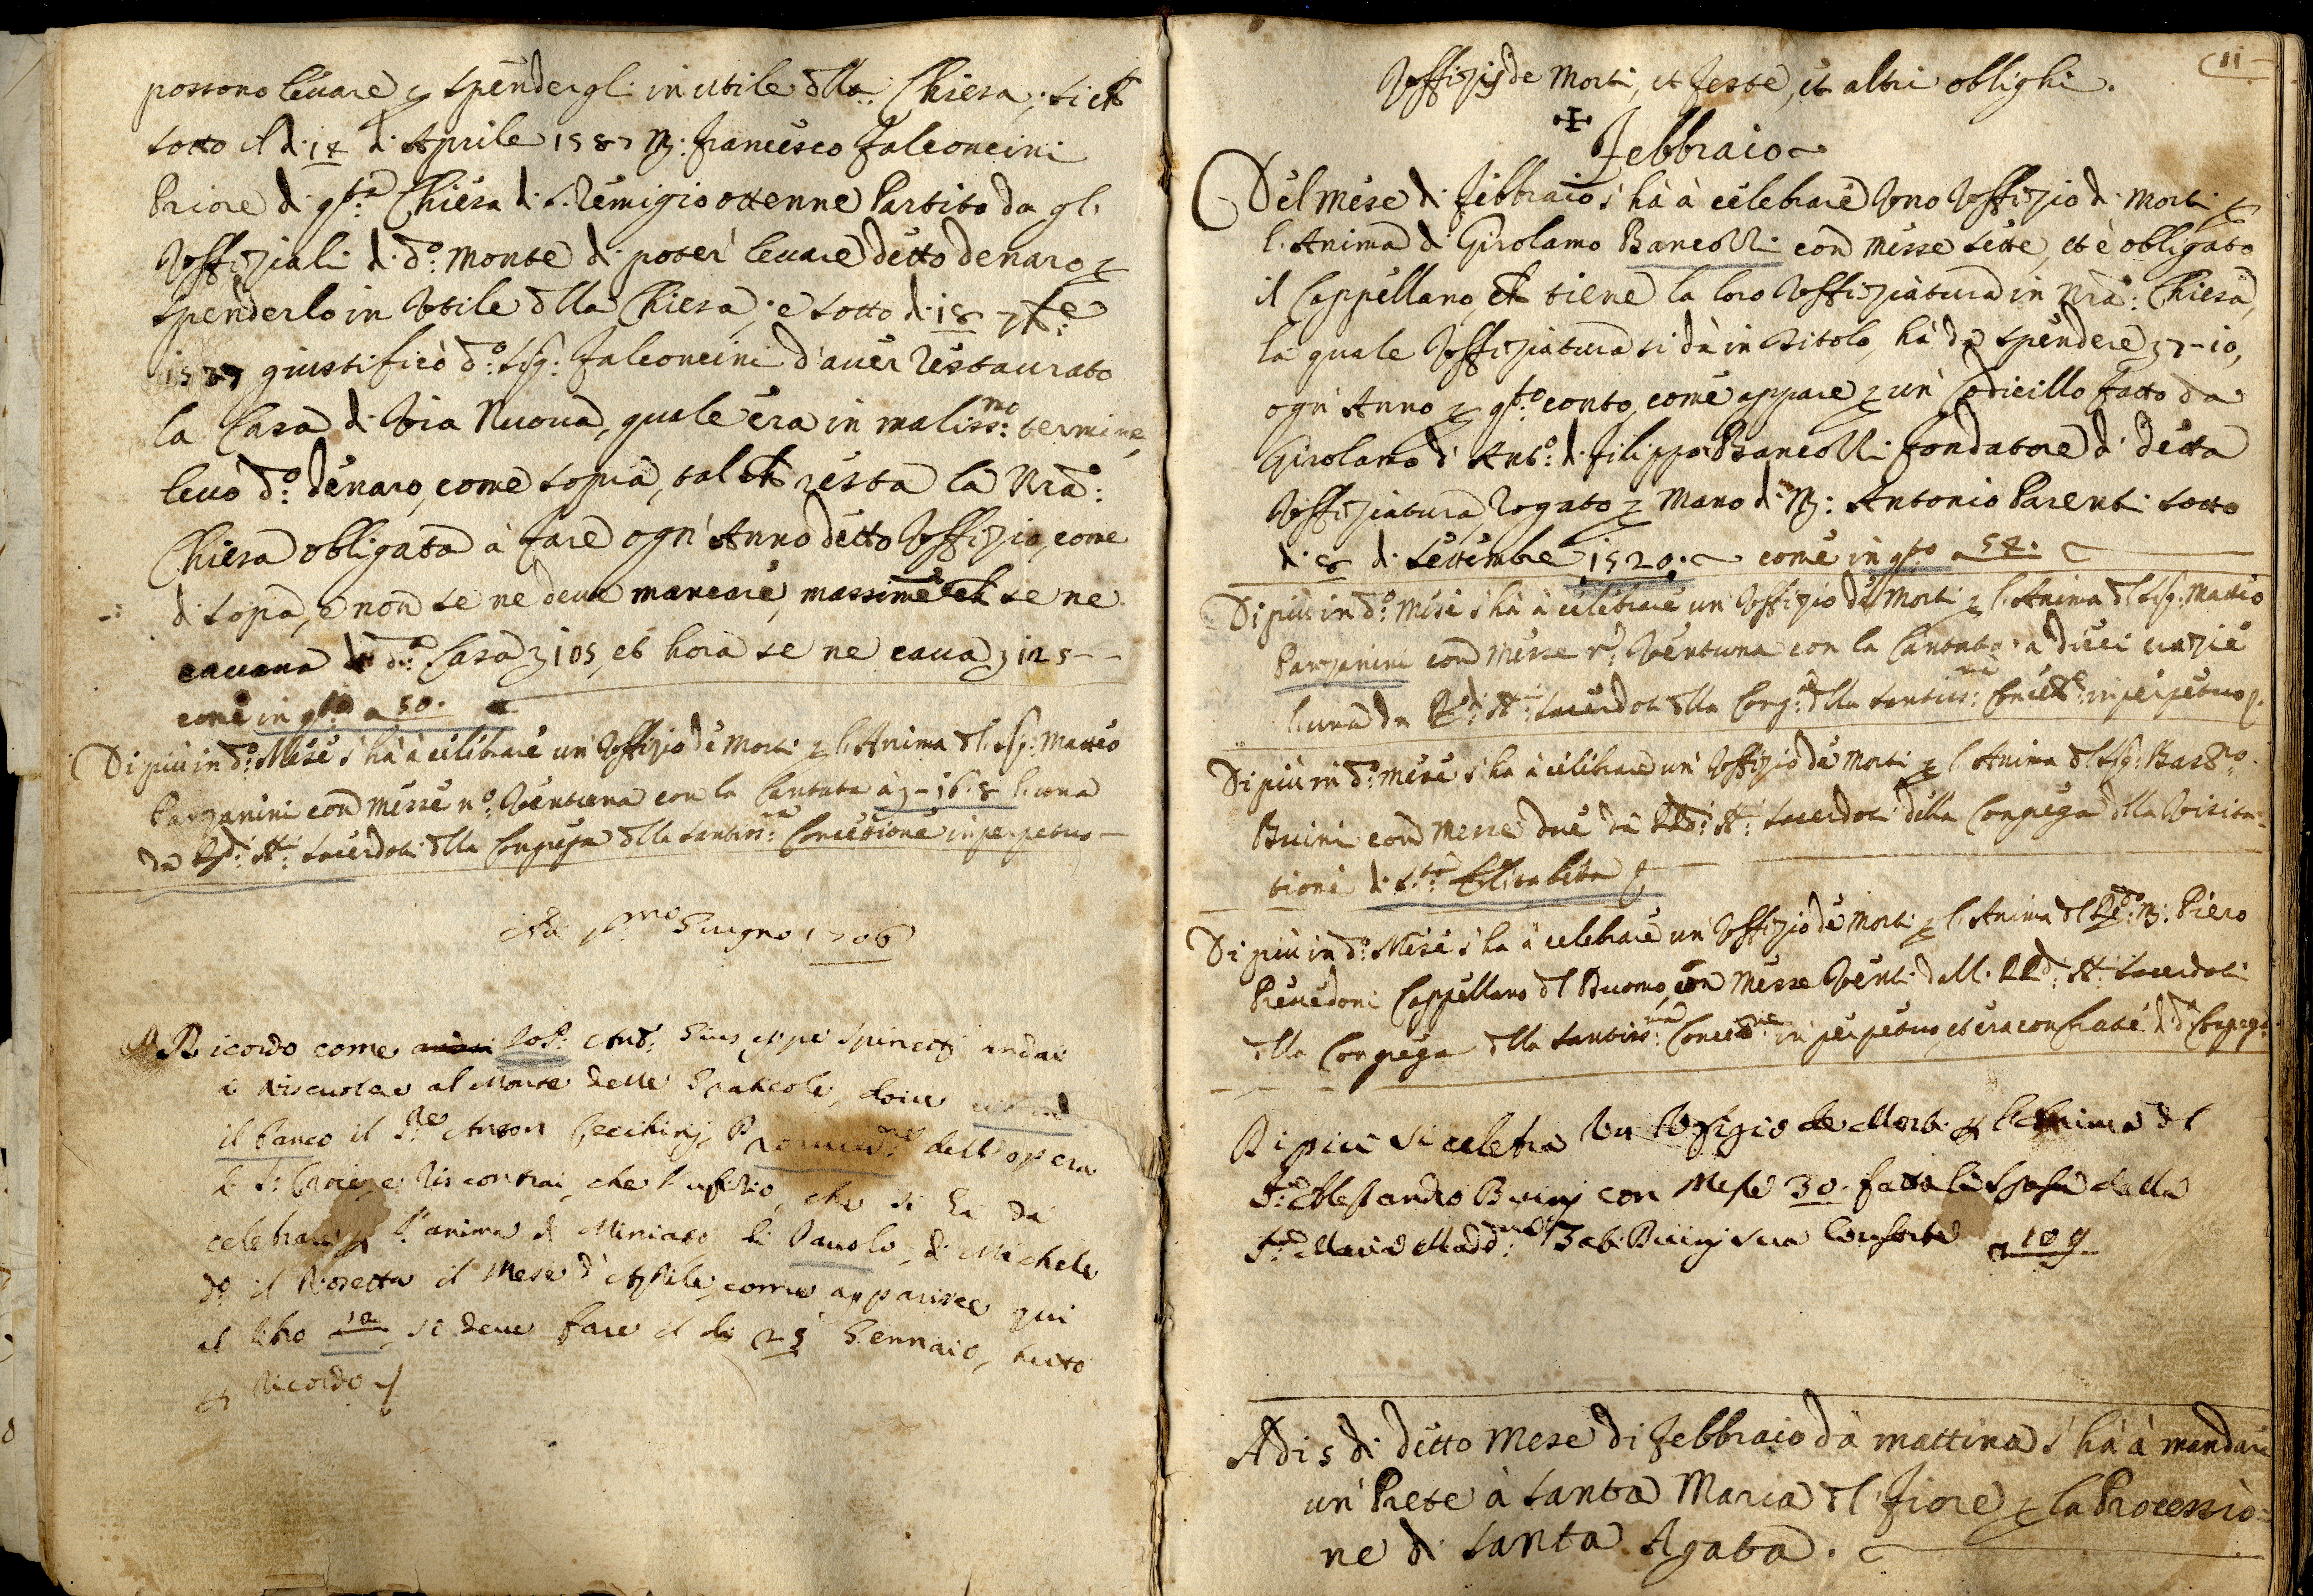 possono levare p spendergli in utile dlla Chiesa; si ch
sotto il dì 14 d'Aprile 1587 M: Francesco Falconcini
Priore di q.ta Chiesa di S: Remigio ottenne Partito da gl'
Uffiziali di d.o Monte di poter levare detto denaro p
spenderlo in Utile dlla Chiesa; e sotto dì 18
1587 giustificò d.o Sig: Falconcini d'aver restaurato
la Casa di Via Nuova, quale era in maliss.mo termine,
levò d.o denaro, come sopra, tal ch resta la Nra:
Chiesa obligata à fare ogn'Anno detto Uffizio, come
di sopra, e non se ne deve mancare, massime ch se ne
cavava di d.a Casa 105, et hora se ne cava 125--
come in q.to a 50.
Di più in d.o Mese s'hà à celebrare un'Uffizio de Morti p l'Anima dl Sig: Matteo
Parzanini con messe n.o Ventuna con la Cantata à - 16. 8 l'una
da RR.di SS.ri Sacerdoti dlla Congrega dlla Santiss.ma Concezione in perpetuo -
Adi p.mo Giugno 1706
Ricordo come andai Giuseppe Spinetti andai
à riscuotere al Monte delle Graticole, dove
il banco il S.re Anton Cecchini, dell'opera
di S: Croce, e riscontrai, che l'ufizio, che si hà da
celebrare p l'anima di Miniato di Pavolo, di Michele
d.o il Rosetta il Mese d'Aprile, come apparisce qui
al libro si deve fare il dì 25 Gennaio, tutto
p ricordo
11
Uffizij de Morti, et Feste, et altri oblighi.
Febbraio
Del mese di Febbraio s'hà à celebrare Uno Uffizio di Morti p
l'Anima di Girolamo Bancozzi con messe sette, et è obligato
il Cappellano, ch tiene la loro Uffiziatura in Nra: Chiesa,
la quale Uffiziatura si dà in titolo, hà da spendere 7-10,
ogn'Anno p q.to conto, come appare p un Codicillo fatto da
Girolamo d'Ant.o di Filippo Bancozzi fondatore di detta
Uffiziatura, Rogato p mano di M: Antonio Parenti sotto
dì 8 di Settembre 1520. come in q.to a 54.
Di più in d.o Mese s'hà à celebrare un'Uffizio de Morti p l'Anima dl Sig: Matteo
Parzanini con Messe n.o Ventuna con la Cantata à dieci crazie
l'una da RR.di SS.ri Sacerdoti dlla Cong.a dlla Santiss.ma Concez.e in perpetuo
Di più in d.o mese s'hà à celebrare un'Uffizio de Morti p l'Anima dl Sig: Bar.o
Buini con Messe due da RR.di SS.ri Sacerdoti della Congrega dlla Visita-
tione di S.ta Elisabetta
Di più in d.o Mese s'hà à celebrare un'Uffizio de Morti p l'Anima dl R.do M: Piero
Prevedoni Cappellano dl Duomo, con Messe Venti dalli RR.di SS.ri Sacerdoti
dlla Congrega dlla Santiss.ma Concez.ne in perpetuo, et era confrate di d.a Congrega.
Di più si celebra Un Ufizio de Morti p l'Anima dl
S.re Alessandro Buinj con Messe 30. fatta la spesa dalla
S.ra Maria Madd.na Buinj sua Consorte a 109
Adì 5 di detto Mese di Febbraio da mattina s'hà à mandare
un Prete à Santa Maria dl Fiore p la Processio=
ne di Santa Agata.